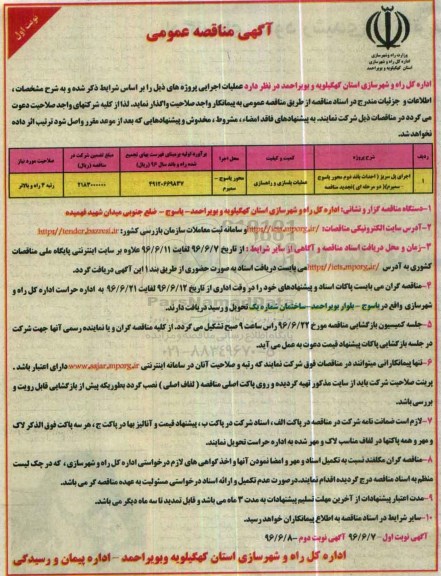 نوبت اول
آگهی مناقصه عمومی
وزارت راه و شهرسازی
اداره کل راه و شهرسازی
استان کهگیلویه و بویراحمد
اداره کل راه و شهرسازی استان کهگیلویه و بویراحمد در نظر دارد عملیات اجرایی پروژه های ذیل را بر اساس شرایط ذکر شده و به شرح مشخصات ،
اطلاعات و جزئیات مندرج در اسناد مناقصه از طریق مناقصه عمومی به پیمانکار واجد صلاحیت واگذار نماید. لذا از کلیه شرکتهای واجد صلاحیت دعوت
می گردد در مناقصات ذیل شرکت نمایند. به پیشنهادهای فاقد امضاء ، مشروط ، مخدوش و پیشنهادهایی که بعد از موعد مقرر واصل شود ترتیب اثر داده
نخواهد شد.
ردیف شرح پروژه کمیت و کیفیت محل اجرا برآورد اولیه برمبنای فهرست بهای تجمیع شده راه و باند سال ۹۶ (ریال) مبلغ تضمین شرکت در مناقصه (ریال) صلاحیت مورد نیاز
۱ اجرای پل سریز ( احداث باند دوم محور یاسوج - سمیرم)( دو مرحله ای )تجدید مناقصه عملیات پلسازی و راهسازی محور یاسوج - سمیرم ۴۹۱۲۰۶۶۹۸۳۷ ۲۱۸۲۰۰۰۰۰۰ رتبه ۴ راه و بالاتر
۱-دستگاه مناقصه گزار و نشانی: اداره کل راه و شهرسازی استان کهگیلویه و بویراحمد-یاسوج - ضلع جنوبی میدان شهید فهمیده
۲-آدرس سایت الکترونیکی مناقصات: http://iets.mporg.ir/ و سامانه ثبت معاملات سازمان بازرسی کشور: http://tender.bazresi.ir
۳-زمان و محل دریافت اسناد مناقصه و آگاهی از سایر شرایط : از تاریخ ۹۶/۶/۷ لغایت ۹۶/۶/۱۱ علاوه بر سایت اینترنتی پایگاه ملی مناقصات
کشوری به آدرس http://iets.mporg.ir/ می بایست دریافت اسناد به صورت حضوری از طریق بند ۱ این آگهی دریافت گردد.
۴-مناقصه گران می بایست پاکات اسناد و پیشنهادهای خود را در وقت اداری از تاریخ ۹۶/۶/۱۲ لغایت ۹۶/۶/۲۱ به اداره حراست اداره کل راه و
شهرسازی واقع در یاسوج - بلوار بویراحمد - ساختمان شماره یک تحویل و رسید دریافت دارند.
۵-جلسه کمیسیون بازگشایی مناقصه مورخ ۹۶/۶/۲۲ راس ساعت ۹ صبح تشکیل می گردد. از کلیه مناقصه گران و یا نماینده رسمی آنها جهت شرکت
در جلسه بازگشایی پاکات پیشنهاد قیمت دعوت به عمل می آید.
۶-تنها پیمانکارانی میتوانند در مناقصات فوق شرکت نمایند که رتبه و صلاحیت آنان در سامانه اینترنتی www.sajar.mporg.ir دارای اعتبار باشد .
پرینت صلاحیت شرکت باید از سایت مذکور تهیه گردیده و روی پاکت اصلی مناقصه ( لفاف اصلی ) نصب گردد بطوریکه پیش از بازگشایی قابل رویت و
بررسی باشد.
۷-لازم است ضمانت نامه شرکت در مناقصه در پاکت الف ، اسناد شرکت در پاکت ب ، پیشنهاد قیمت و آنالیز بها در پاکت ج ، هر سه پاکت فوق الذکر لاک
و مهر و همه پاکتها در لفاف مناسب لاک و مهر شده به اداره حراست تحویل نمایند.
۸-مناقصه گران مکلفند نسبت به تکمیل اسناد و مهر و امضا نمودن آنها و اخذ گواهی های لازم درخواستی اداره کل راه و شهرسازی ، که در چک لیست
منظم به اسناد مناقصه درج گردیده اقدام نمایند. در صورت عدم تکمیل و ارائه اسناد درخواستی مسئولیت به عهده مناقصه گر می باشد.
۹-مدت اعتبار پیشنهادات از آخرین مهلت تسلیم پیشنهادات به مدت ۳ ماه می باشد و قابل تمدید تا سه ماه دیگر می باشد.
۱۰-سایر شرایط در اسناد مناقصه به اطلاع پیمانکاران خواهد رسید.
آگهی نوبت اول - ۹۶/۶/۷ آگهی نوبت دوم -۹۶/۶/۸
اداره کل راه و شهرسازی استان کهگیلویه وبویراحمد - اداره پیمان و رسیدگی